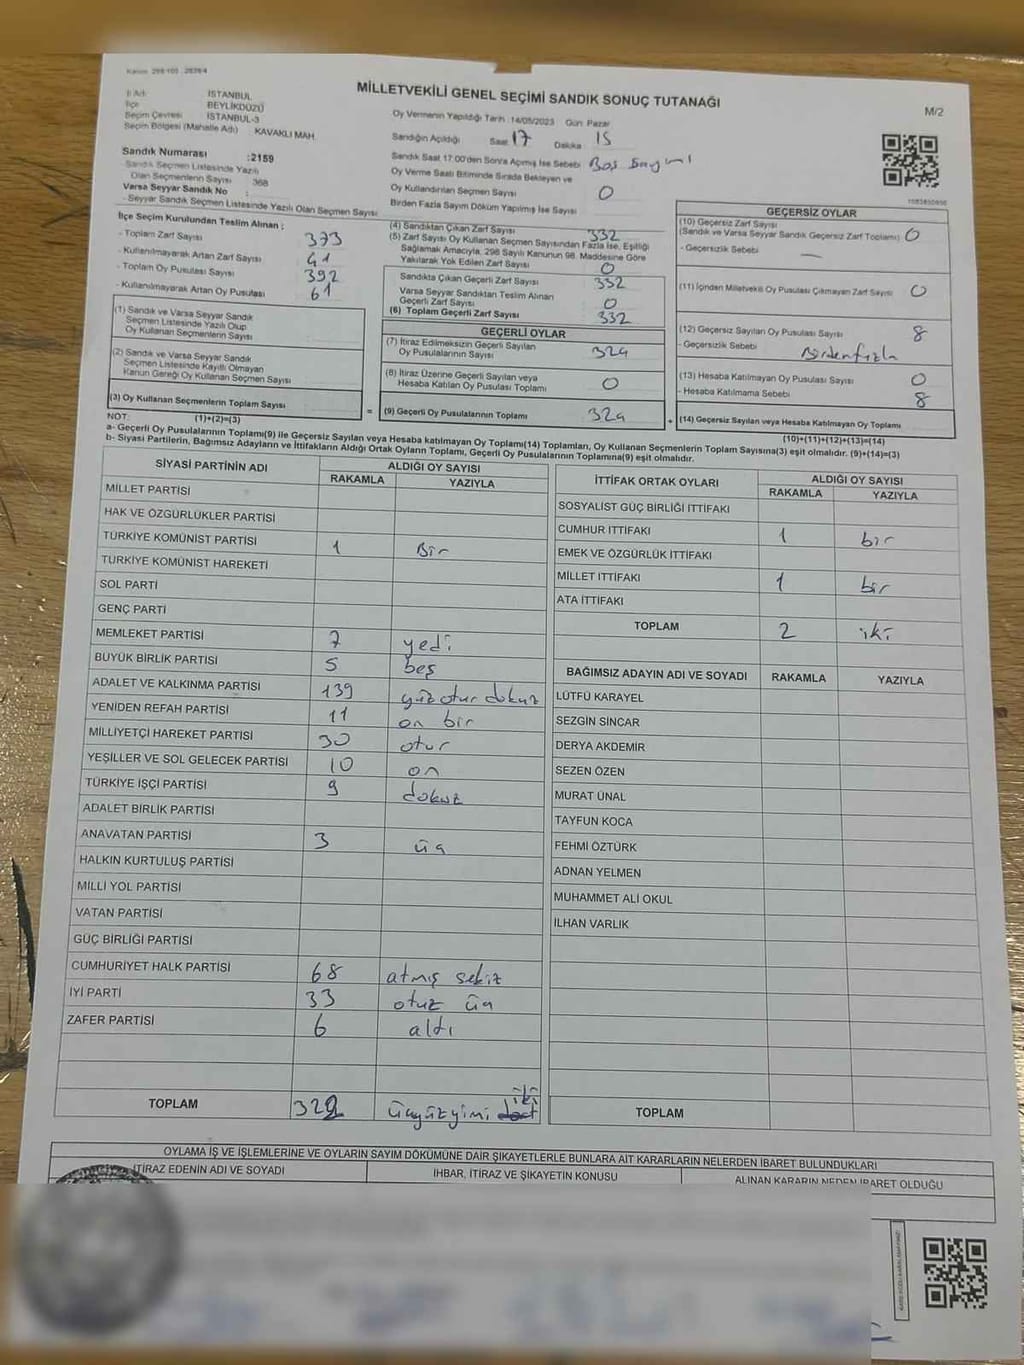 Kanun 298/105 : 2839/4
MİLLETVEKİLİ GENEL SEÇİMİ SANDIK SONUÇ TUTANAĞI
M/2
İl Adı İSTANBUL
İlçe BEYLİKDÜZÜ
Seçim Çevresi İSTANBUL-3
Seçim Bölgesi (Mahalle Adı) KAVAKLI MAH.
Oy Vermenin Yapıldığı Tarih :14/05/2023 Gün: Pazar
Sandığın Açıldığı Saat 17 Dakika 15
Sandık Saat 17:00'den Sonra Açmış İse Sebebi Boş Sayımı
Oy Verme Saati Bitiminde Sırada Bekleyen ve
Oy Kullandırılan Seçmen Sayısı 0
Birden Fazla Sayım Döküm Yapılmış İse Sayısı
Sandık Numarası :2159
Sandık Seçmen Listesinde Yazılı
Olan Seçmenlerin Sayısı 368
Varsa Seyyar Sandık No :
- Seyyar Sandık Seçmen Listesinde Yazılı Olan Seçmen Sayısı
İlçe Seçim Kurulundan Teslim Alınan :
- Toplam Zarf Sayısı 373
- Kullanılmayarak Artan Zarf Sayısı 41
- Toplam Oy Pusulası Sayısı 392
- Kullanılmayarak Artan Oy Pusulası 61
(1) Sandık ve Varsa Seyyar Sandık
Seçmen Listesinde Yazılı Olup
Oy Kullanan Seçmenlerin Sayısı
(2) Sandık ve Varsa Seyyar Sandık
Seçmen Listesinde Kayıtlı Olmayan
Kanun Gereği Oy Kullanan Seçmen Sayısı
(3) Oy Kullanan Seçmenlerin Toplam Sayısı
(1)+(2)=(3)
(4) Sandıktan Çıkan Zarf Sayısı 332
(5) Zarf Sayısı Oy Kullanan Seçmen Sayısından Fazla İse, Eşitliği
Sağlamak Amacıyla, 298 Sayılı Kanunun 98. Maddesine Göre
Yakılarak Yok Edilen Zarf Sayısı 0
Sandıkta Çıkan Geçerli Zarf Sayısı 332
Varsa Seyyar Sandıktan Teslim Alınan
Geçerli Zarf Sayısı 0
(6) Toplam Geçerli Zarf Sayısı 332
GEÇERLİ OYLAR
(7) İtiraz Edilmeksizin Geçerli Sayılan
Oy Pusulalarının Sayısı 324
(8) İtiraz Üzerine Geçerli Sayılan veya
Hesaba Katılan Oy Pusulası Toplamı 0
= (9) Geçerli Oy Pusulalarının Toplamı 324
GEÇERSİZ OYLAR
(10) Geçersiz Zarf Sayısı
(Sandık ve Varsa Seyyar Sandık Geçersiz Zarf Toplamı) 0
- Geçersizlik Sebebi —
(11) İçinden Milletvekili Oy Pusulası Çıkmayan Zarf Sayısı 0
(12) Geçersiz Sayılan Oy Pusulası Sayısı 8
- Geçersizlik Sebebi Birden fazla
(13) Hesaba Katılmayan Oy Pusulası Sayısı 0
- Hesaba Katılmama Sebebi 8
+ (14) Geçersiz Sayılan veya Hesaba Katılmayan Oy Toplamı
(10)+(11)+(12)+(13)=(14)
NOT:
a- Geçerli Oy Pusulalarının Toplamı(9) ile Geçersiz Sayılan veya Hesaba katılmayan Oy Toplamı(14) Toplamları, Oy Kullanan Seçmenlerin Toplam Sayısına(3) eşit olmalıdır. (9)+(14)=(3)
b- Siyasi Partilerin, Bağımsız Adayların ve İttifakların Aldığı Ortak Oyların Toplamı, Geçerli Oy Pusulalarının Toplamına(9) eşit olmalıdır.
SİYASİ PARTİNİN ADI ALDIĞI OY SAYISI
RAKAMLA YAZIYLA
MİLLET PARTİSİ
HAK VE ÖZGÜRLÜKLER PARTİSİ
TÜRKİYE KOMÜNİST PARTİSİ 1 Bir
TÜRKİYE KOMÜNİST HAREKETİ
SOL PARTİ
GENÇ PARTİ
MEMLEKET PARTİSİ 7 yedi
BÜYÜK BİRLİK PARTİSİ 5 beş
ADALET VE KALKINMA PARTİSİ 139 yüz otur dokuz
YENİDEN REFAH PARTİSİ 11 on bir
MİLLİYETÇİ HAREKET PARTİSİ 30 otur
YEŞİLLER VE SOL GELECEK PARTİSİ 10 on
TÜRKİYE İŞÇİ PARTİSİ 9 dokuz
ADALET BİRLİK PARTİSİ
ANAVATAN PARTİSİ 3 üç
HALKIN KURTULUŞ PARTİSİ
MİLLİ YOL PARTİSİ
VATAN PARTİSİ
GÜÇ BİRLİĞİ PARTİSİ
CUMHURİYET HALK PARTİSİ 68 atmış sekiz
İYİ PARTİ 33 otuz üç
ZAFER PARTİSİ 6 altı
TOPLAM 322 üçyüzyimi iki
İTTİFAK ORTAK OYLARI ALDIĞI OY SAYISI
RAKAMLA YAZIYLA
SOSYALİST GÜÇ BİRLİĞİ İTTİFAKI
CUMHUR İTTİFAKI 1 bir
EMEK VE ÖZGÜRLÜK İTTİFAKI
MİLLET İTTİFAKI 1 bir
ATA İTTİFAKI
TOPLAM 2 iki
BAĞIMSIZ ADAYIN ADI VE SOYADI RAKAMLA YAZIYLA
LÜTFÜ KARAYEL
SEZGİN SİNCAR
DERYA AKDEMİR
SEZEN ÖZEN
MURAT ÜNAL
TAYFUN KOCA
FEHMİ ÖZTÜRK
ADNAN YELMEN
MUHAMMET ALİ OKUL
İLHAN VARLIK
TOPLAM
OYLAMA İŞ VE İŞLEMLERİNE VE OYLARIN SAYIM DÖKÜMÜNE DAİR ŞİKAYETLERLE BUNLARA AİT KARARLARIN NELERDEN İBARET BULUNDUKLARI
İTİRAZ EDENİN ADI VE SOYADI İHBAR, İTİRAZ VE ŞİKAYETİN KONUSU ALINAN KARARIN NEDEN İBARET OLDUĞU